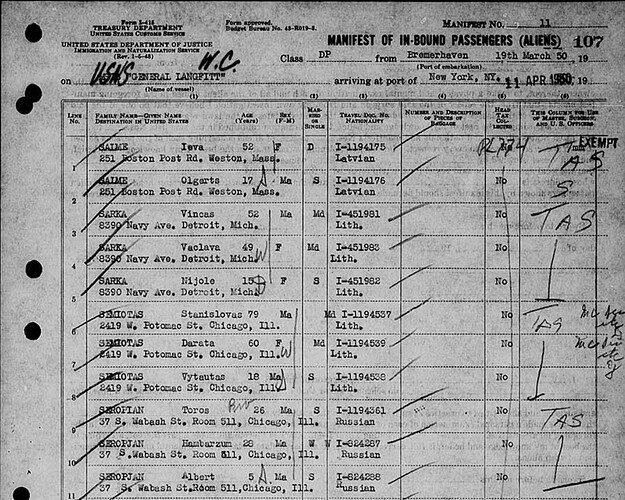 Form I-415
TREASURY DEPARTMENT
UNITED STATES CUSTOMS SERVICE
UNITED STATES DEPARTMENT OF JUSTICE
IMMIGRATION AND NATURALIZATION SERVICE
(Rev. 1-5-48)
Form approved.
Budget Bureau No. 43-R019-3.
MANIFEST No. 11
MANIFEST OF IN-BOUND PASSENGERS (ALIENS) 107
W.C.
Class DP from Bremerhaven 19th March 50, 19
(Port of embarkation)
on "GENERAL LANGFITT" arriving at port of New York, NY. 11 APR 1950, 19
(Name of vessel)
(1) (2) (3) (4) (5) (6) (7)
LINE No.
FAMILY NAME—GIVEN NAME
DESTINATION IN UNITED STATES
AGE (YEARS)
SEX (F-M)
MARRIED OR SINGLE
TRAVEL DOC. NO.
NATIONALITY
NUMBER AND DESCRIPTION OF PIECES OF BAGGAGE
HEAD TAX COLLECTED
THIS COLUMN FOR USE OF MASTER, SURGEON, AND U. S. OFFICERS
EXEMPT
1 SAIME Ieva 52 F D I-1194175 TAS
251 Boston Post Rd. Weston, Mass. Latvian
2 SAIME Olgerts 17 Ma S I-1194176 No S
251 Boston Post Rd. Weston, Mass. Latvian
3 SARKA Vincas 52 Ma Md I-451981 No TAS
8390 Navy Ave. Detroit, Mich. Lith.
4 SARKA Vaclava 49 F Md I-451983 No
8390 Navy Ave. Detroit, Mich. Lith.
5 SARKA Nijole 15 F S I-451982 No
8390 Navy Ave. Detroit, Mich. Lith.
6 SEMIOTAS Stanislovas 79 Ma Md I-1194537 No TAS
2419 W. Potomac St. Chicago, Ill. Lith.
7 SEMIOTAS Darata 60 F Md I-1194539 No
2419 W. Potomac St. Chicago, Ill. Lith.
8 SEMIOTAS Vytautas 18 Ma S I-1194538 No
2419 W. Potomac St. Chicago, Ill. Lith.
9 SEROPIAN Toros 26 Ma S I-1194361 No TAS
37 S. Wabash St. Room 511, Chicago, Ill. Russian
10 SEROPJAN Hambarzum 28 Ma W W I-824287 No
37 S. Wabash St. Room 511, Chicago, Ill. Russian
11 SEROPJAN Albert 5 Ma S I-824288 No
37 S. Wabash St. Room 511, Chicago, Ill. Russian